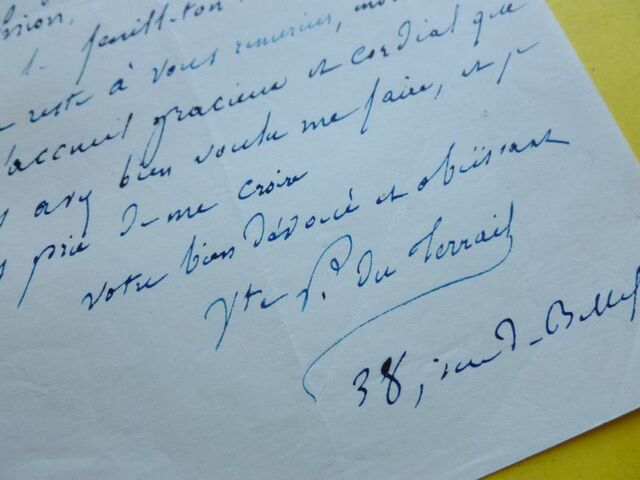 feuill-ton
reste à vous remercier, mo
accueil gracieux et cordial que
avez bien voulu me faire, et je
prie de me croire
votre bien dévoué et obéissant
Vte P. du Terrail
38, rue de Bellef